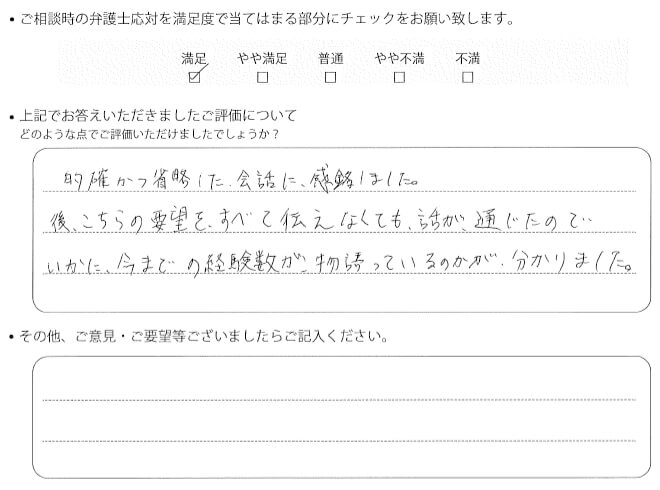 • ご相談時の弁護士応対を満足度で当てはまる部分にチェックをお願い致します。
満足 やや満足 普通 やや不満 不満
• 上記でお答えいただきましたご評価について
どのような点でご評価いただけましたでしょうか？
的確かつ省略した、会話に、感銘しました。
後、こちらの要望を、すべて伝えなくても、話が、通じたので
いかに、今までの経験数が、物語っているのかが、分かりました。
• その他、ご意見・ご要望等ございましたらご記入ください。